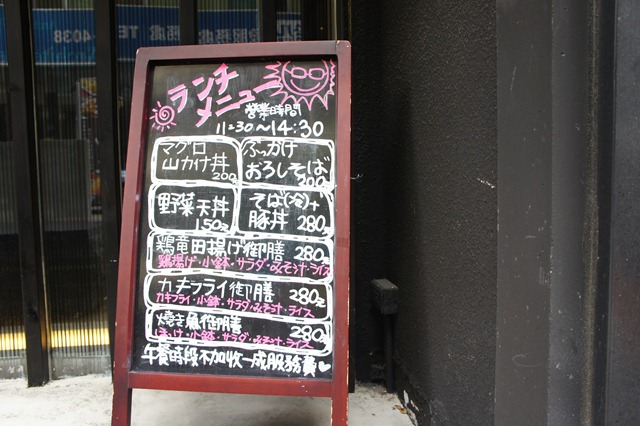 TEL 4038
ランチ
メニュー
営業時間
11:30～14:30
マグロ
山かけ丼
200
ぶっかけ
おろしそば
200
野菜天丼
150元
そば(冷)+
豚丼 280
鶏竜田揚げ御膳 280元
鶏揚げ・小鉢・サラダ・みそ汁・ライス
カキフライ御膳 280元
カキフライ・小鉢・サラダ・みそ汁・ライス
焼き魚御膳 280元
ほっけ・小鉢・サラダ・みそ汁・ライス
午餐時段不加收一成服務費